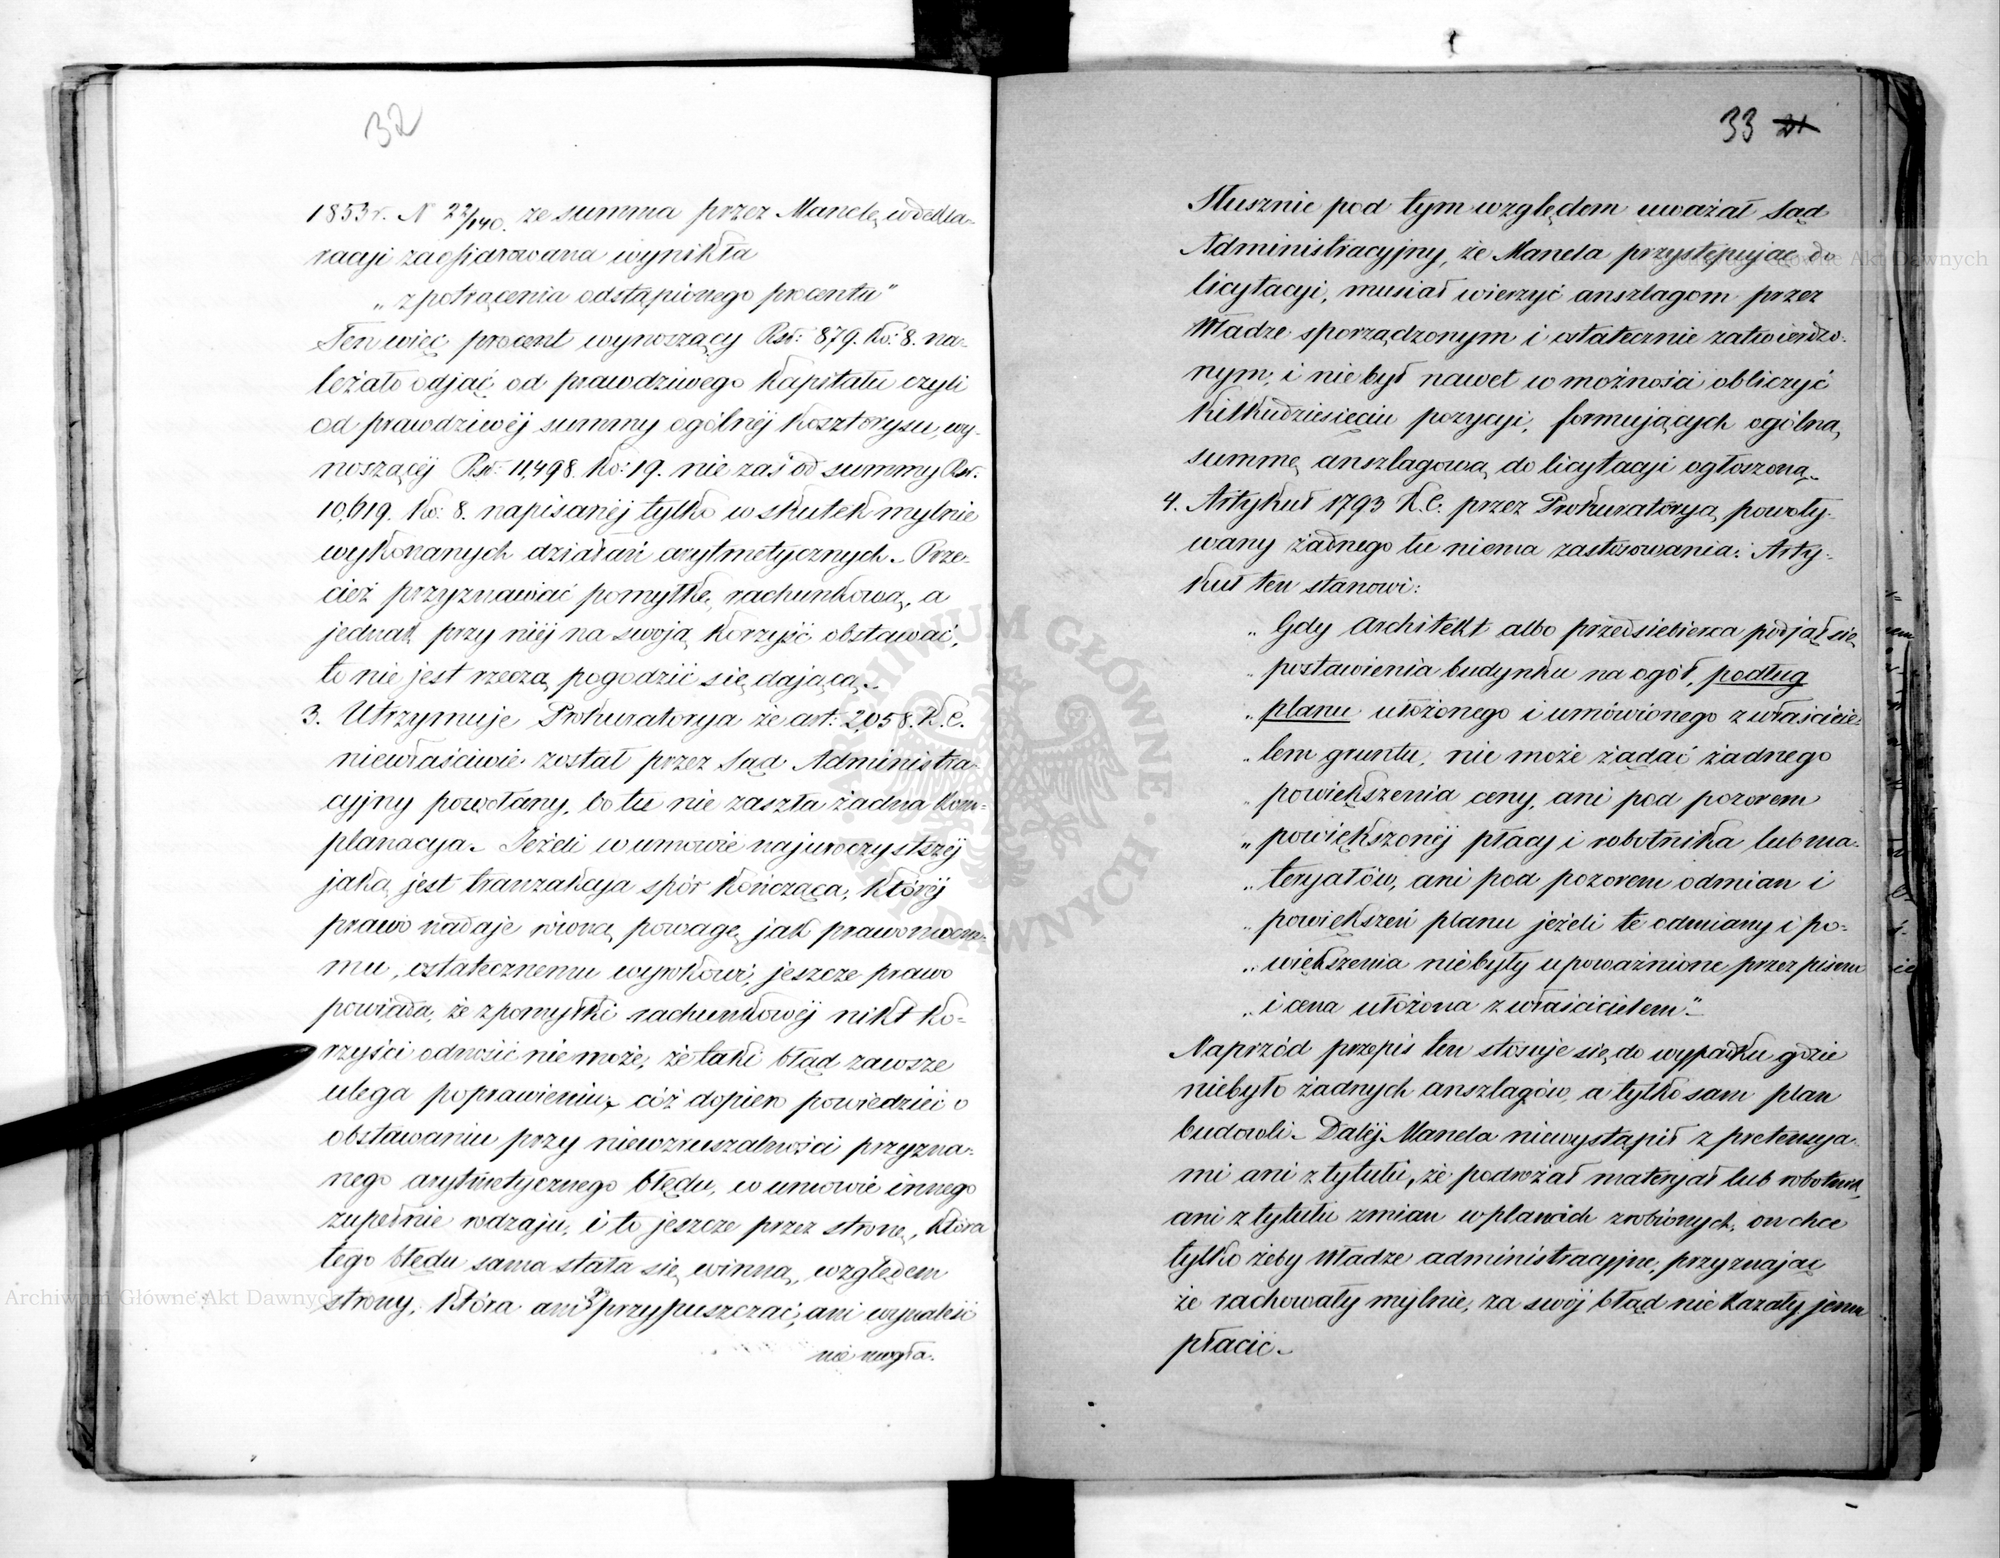 32
1853 r. N 22/140. ze summa przez Manelę w dekla-
racyi zaofiarowana wynikła
„z potrącenia odstąpionego procentu”
Ten więc procent wynoszący Rsr: 879. Ko: 8. na-
leżało odjąć od prawdziwego kapitału czyli
od prawdziwéj summy ogólnéj kosztorysu, wy-
noszącéj Rsr: 11,498 Ko: 19. nie zaś od summy Rsr.
10,619. Ko: 8. napisanéj tylko w skutek mylnie
wykonanych działań arytmetycznych. Prze-
cież przyznawać pomyłkę rachunkową, a
jednak przy niéj na swoją korzyść obstawać,
to nie jest rzeczą pogodzić się dającą.
3. Utrzymuje Prokuratorya że art: 2,058. K.C.
niewłaściwie został przez Sąd Administra-
cyjny powołany, bo tu nie zaszła żadna kom-
planacya. Jeżeli w umowie najuroczystszéj
jaką jest tranzakcya spór kończąca, któréj
prawo nadaje równą powagę jak prawomocne-
mu, ostatecznemu wyrokowi, jeszcze prawo
powiada, że z pomyłki rachunkowéj nikt ko-
rzyści odnosić nie może, że taki błąd zawsze
ulega poprawieniu, cóż dopiero powiedzieć o
obstawaniu przy niewzruszalności przyzna-
nego arytmetycznego błędu, w umowie innego
zupełnie rodzaju, i to jeszcze przez stronę, która
tego błędu sama stała się winną, względem
strony, która ani go przypuszczać, ani wynaleść
nie mogła.
33 21
Słusznie pod tym względem uważał Sąd
Administracyjny, że Manela przystępując do
licytacyi, musiał wierzyć anszlagom przez
Władze sporządzonym i ostatecznie zatwierdzo-
nym, i nie był nawet w możności obliczyć
kilkudziesięciu pozycyi, formujących ogólną
summę anszlagową do licytacyi ogłoszoną.
4. Artykuł 1793 K.C. przez Prokuratoryą powoły-
wany żadnego tu niema zastosowania. Arty-
kuł ten stanowi:
„Gdy architekt albo przedsiebierca podjął się
„postawienia budynku na ogół, podług
„planu ułożonego i umówionego z właścicie-
„lem gruntu, nie może żądać żadnego
„powiększenia ceny, ani pod pozorem
„powiększonéj płacy i robotnika lub ma-
„teryałów, ani pod pozorem odmian i
„powiększeń planu jeżeli te odmiany i po-
„większenia niebyły upoważnione przez pismo
„i cena ułożona z właścicielem.”
Naprzód przepis ten stosuje się do wypadku gdzie
niebyło żadnych anszlagów, a tylko sam plan
budowli. Daléj Manela niewystąpił z pretensya-
mi ani z tytułu, że podrożał materyał lub robotnik,
ani z tytułu zmian w planach zrobionych, on chce
tylko żeby Władze administracyjne, przyznając
że rachowały mylnie, za swój błąd nie kazały jemu
płacić.
Archiwum Główne Akt Dawnych
ARCHIWUM GŁÓWNE AKT DAWNYCH